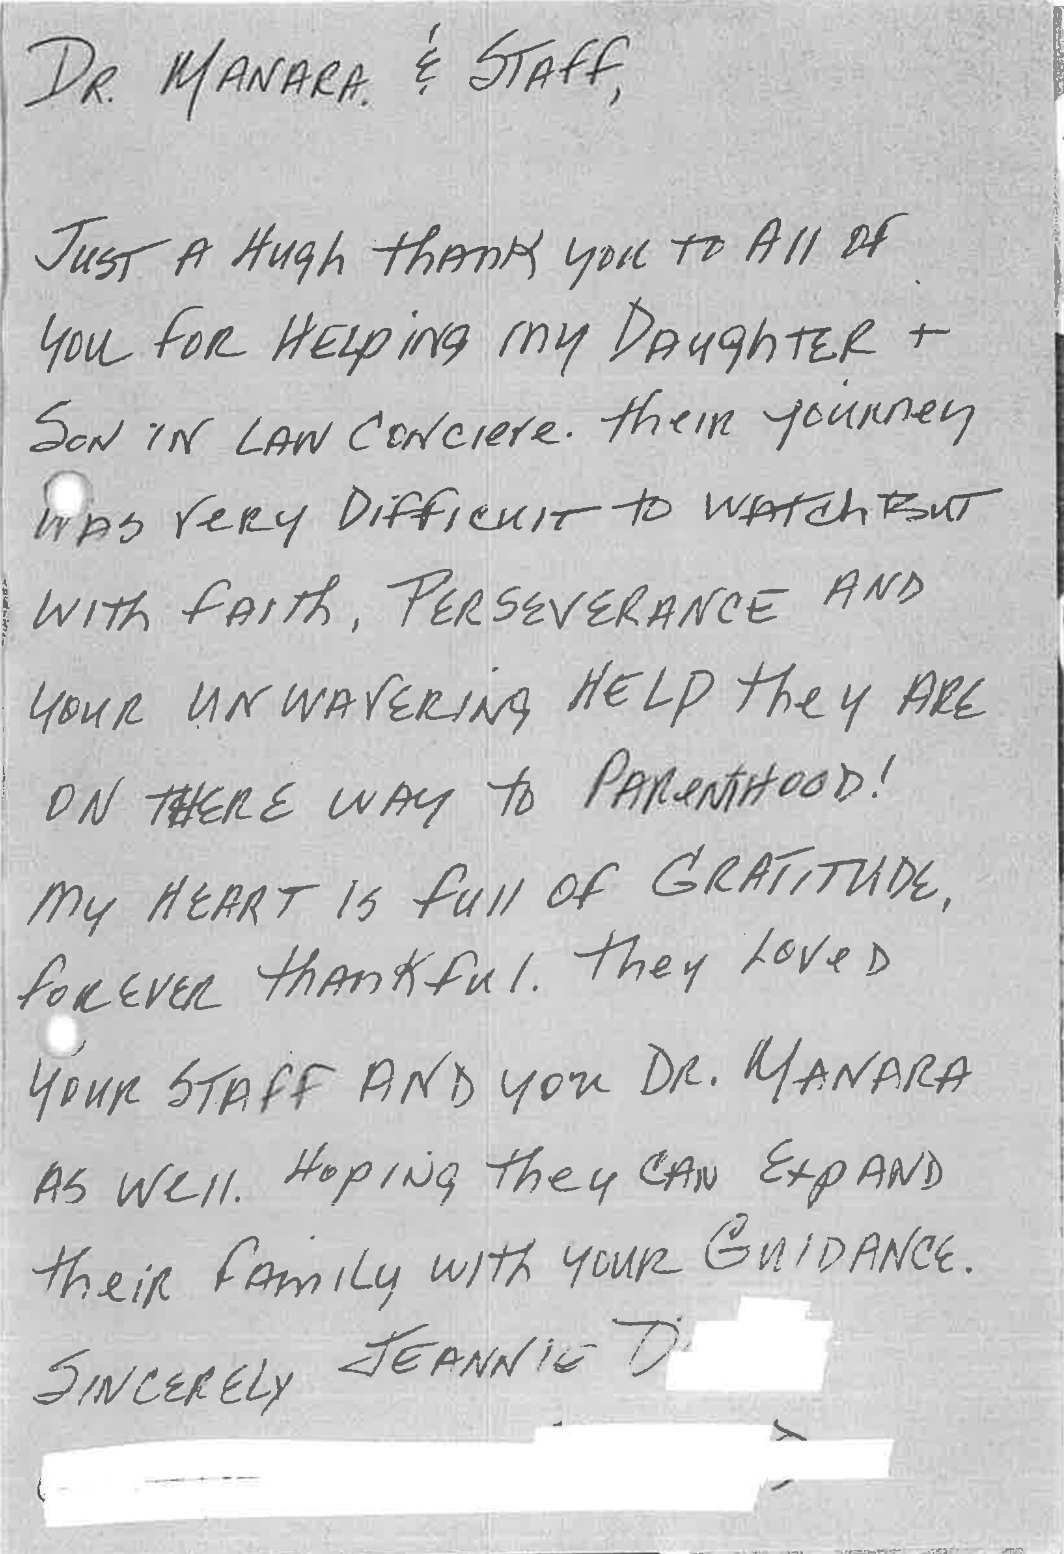 Dr. Manara. & Staff,
Just a Hugh thank you to All of
you for Helping my Daughter +
Son in Law Conciere. their yourney
was very Difficult to watch But
with faith, Perseverance AND
your unwavering Help they Are
on there way to Parenthood!
my Heart is full of Gratitude,
forever thankful. they Loved
your staff AND you Dr. Manara
as well. Hoping they can Expand
their family with your Guidance.
Sincerely Jeannie D